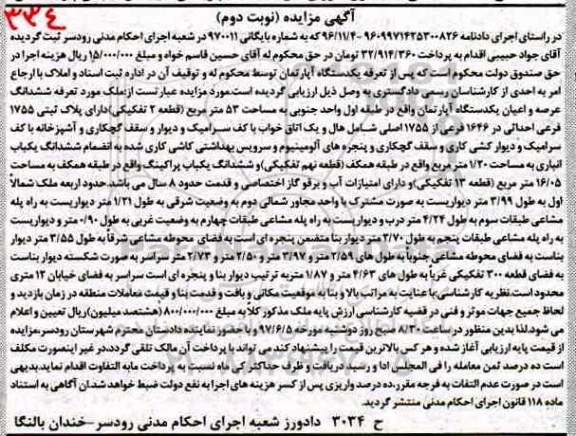 ۳۳۴
آگهی مزایده (نوبت دوم)
در راستای اجرای دادنامه ۹۶۰۹۹۷۱۴۲۵۳۰۰۸۲۶ -۹۶/۱۱/۴ که به شماره بایگانی ۹۷۰۰۱۱ در شعبه اجرای احکام مدنی رودسر ثبت گردیده
آقای جواد حبیبی اقدام به پرداخت ۳۲/۹۱۴/۳۶۰ تومان در حق محکوم له آقای حسین قاسم خواه و مبلغ ۱۵/۰۰۰/۰۰۰ ریال هزینه اجرا در
حق صندوق دولت محکوم است که پس از تعرفه یکدستگاه آپارتمان توسط محکوم له و توقیف آن در اداره ثبت اسناد و املاک با ارجاع
امر به احدی از کارشناسان رسمی دادگستری به وصف ذیل ارزیابی گردیده است.مورد مزایده عبارتست از:ملک مورد تعرفه ششدانگ
عرصه و اعیان یکدستگاه آپارتمان واقع در طبقه اول واحد جنوبی به مساحت ۵۳ متر مربع (قطعه ۲ تفکیکی)دارای پلاک ثبتی ۱۷۵۵
فرعی احداثی در ۱۶۴۶ فرعی از ۱۷۵۵ اصلی شامل هال و یک اتاق خواب با کف سرامیک و دیوار و سقف گچکاری و آشپزخانه با کف
سرامیک و دیوار کشی کاری و سقف گچکاری و پنجره های آلومینیوم و سرویس بهداشتی کاشی کاری شده به انضمام ششدانگ یکباب
انباری به مساحت ۱/۲۰ متر مربع واقع در طبقه همکف (قطعه نهم تفکیکی)و ششدانگ یکباب پراکینگ واقع در طبقه همکف به مساحت
۱۶/۰۵ متر مربع (قطعه ۱۳ تفکیکی)و دارای امتیازات آب و برق و گاز اختصاصی و قدمت حدود ۸ سال می باشد.حدود اربعه ملک شمالاً
اول به طول ۳/۹۹ متر دیواریست به صورت مشترک با واحد مجاور شمالی دوم به وضعیت شرقی به طول ۱/۲۱ متر دیواریست به راه پله
مشاعی طبقات سوم به طول ۴/۲۴ متر درب و دیواریست به راه پله مشاعی طبقات چهارم به وضعیت غربی به طول ۰/۹۰ متر و دیواریست
به راه پله مشاعی طبقات پنجم به طول ۳/۷۰ متر دیوار بنا متضمن پنجره ای است به فضای محوطه مشاعی شرقاً به طول ۳/۵۵ متر دیوار
بناست به فضای محوطه مشاعی جنوباً به طول های ۲/۵۹ متر و ۳/۹۷ متر و ۲/۵۰ متر و ۲/۷۳ متر سراسر به صورت شکسته دیوار بناست
به فضای قطعه ۳۰۰ تفکیکی غرباً به طول های ۴/۶۳ متر و ۱/۸۷ متربه ترتیب دیوار بنا و پنجره ای است سراسر به فضای خیابان ۱۲ متری
محدود است.نظریه کارشناسی:با عنایت به مراتب بالا و بنا به موقعیت مکانی و بافت و قدمت بنا و قیمت معاملات منطقه در زمان بازدید و
لحاظ جمیع جهات موثر و فنی در قضیه کارشناسی ارزش پایه ملک مذکور کلاً به مبلغ ۸۰۰/۰۰۰/۰۰۰ (هشتصد میلیون)ریال تعیین و اعلام
می شود.لذا بدین منظور در ساعت ۸/۳۰ صبح روز دوشنبه مورخه ۹۷/۶/۵ و با حضور نماینده دادستان محترم شهرستان رودسر،مزایده
از قیمت پایه ارزیابی آغاز شده و هر کس بالاترین قیمت را پیشنهاد کند می تواند با پرداخت آن مالک تلقی گردد،در غیر اینصورت مکلف
است ده درصد ثمن معامله را فی المجلس ادا و رسید دریافت و ظرف حداکثر یک ماه نسبت به پرداخت مابه التفاوت اقدام نماید.بدیهی
است در صورت عدم التفات به فرجه مقرر،ده درصد واریزی پس از کسر هزینه های اجرا به نفع دولت ضبط خواهد شد.آن آگاهی به استناد
ماده ۱۱۸ قانون اجرای احکام مدنی منتشر گردید.
ح ۳۰۳۴ دادورز شعبه اجرای احکام مدنی رودسر-خندان بالنگا